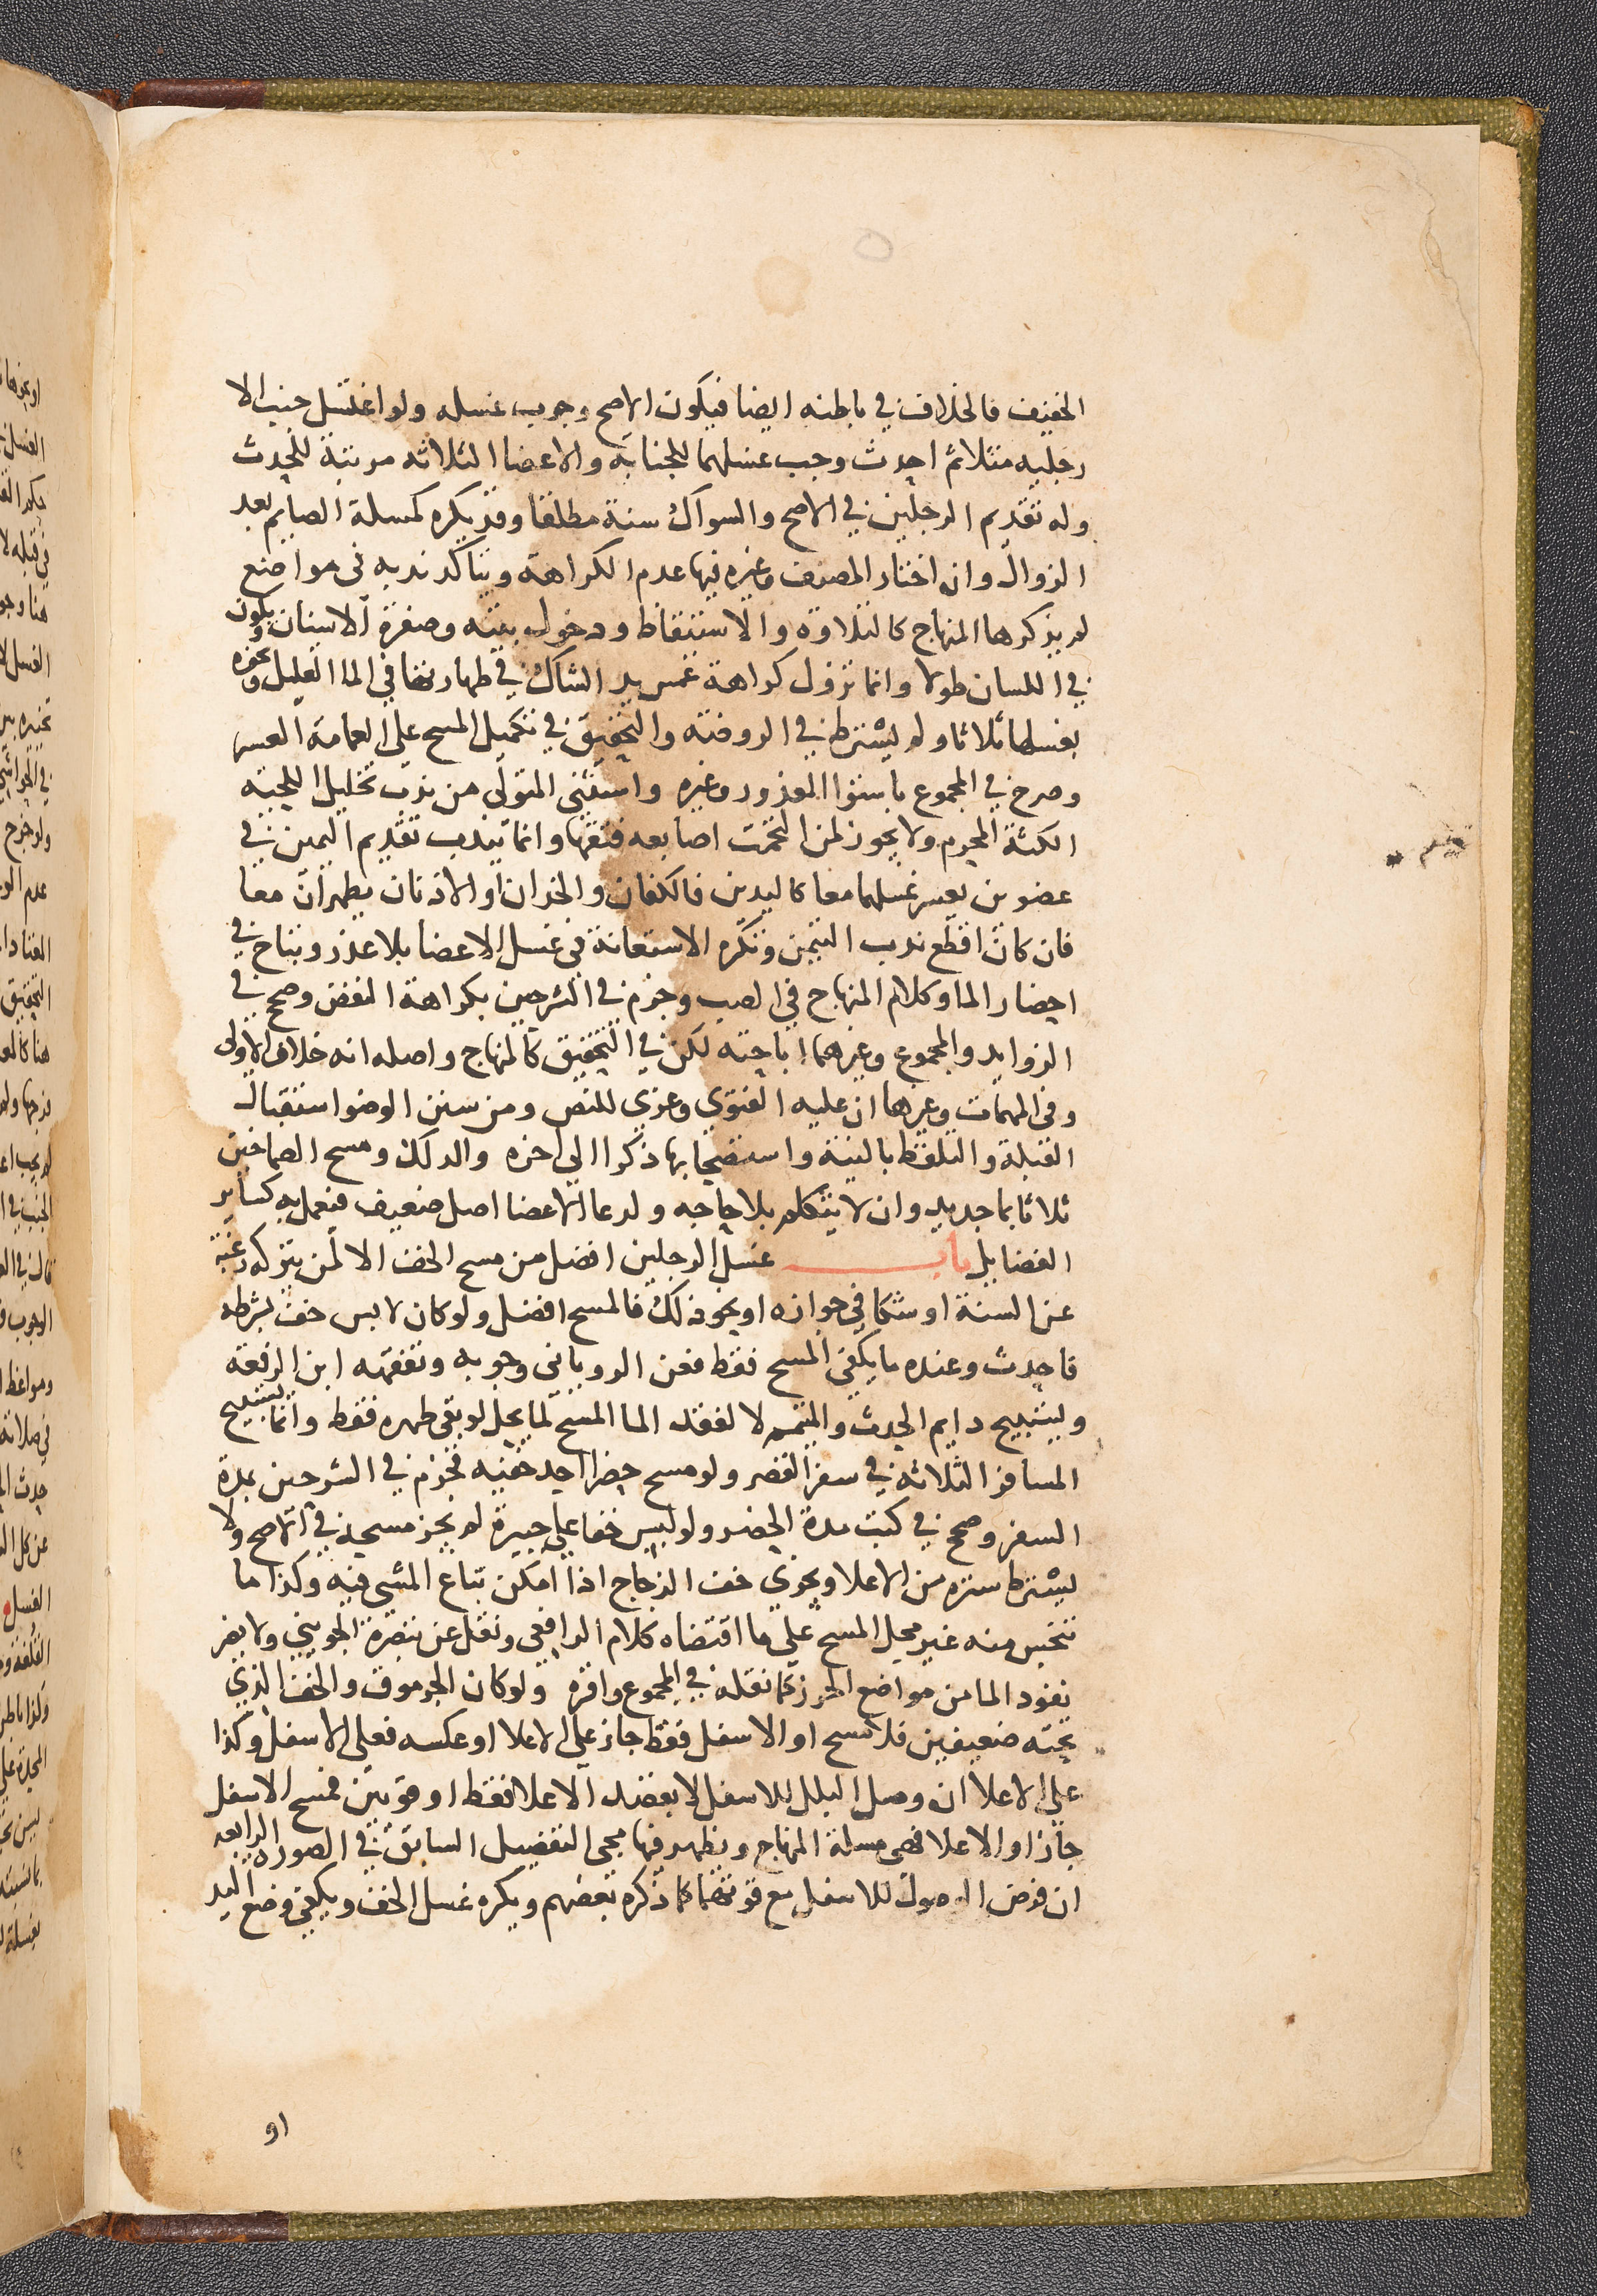 الخفيف فالخلاف في باطنه ايضا فيكون الاصح وجوب غسله ولو اغتسل جنب الا
رجليه مثلا ثم احدث وجب غسلهما للجنابة والاعضا الثلاثه مرتبة للحدث
وله تقديم الرجلين في الاصح والسواك سنة مطلقا وقد يكره كمسلة الصايم بعد
الزوال وان اختار المصنف وغيره فيها عدم الكراهة ويتاكد ندبه في مواضع
لم يذكرها المنهاج كالتلاوة والاستيقاظ ودخول بيته وصفرة الاسنان ويكون
في اللسان طولا وانما تزول كراهة غمس يد الشاك في طهارتها في الما القليل ونحوه
بغسلها ثلاثا ولم يشترط في الروضة والتحقيق في تكميل المسح على العمامة العسر
وصرح في المجموع باستوا المعذور وغيره واستثنى المتولي من ندب تخليل اللحية
الكثة المحرم ولا يجوز لمن التحمت اصابعه فتقها وانما يندب تقديم اليمين في
عضوين يعسر غسلهما معا كاليدين فالكفان والخدان او الاذنان يطهران معا
فان كان اقطع ندب التيمن وتكره الاستعانة في غسل الاعضا بلا عذر وتباح في
احضار الما وكلام المنهاج في الصب وجزم في الشرحين بكراهة النفض وصحح في
الزوايد والمجموع وغيرهما اباحته لكن في التحقيق كالمنهاج واصله انه خلاف الاولى
وفي المهمات وغيرها ان عليه الفتوى وعزي للنص ومن سنن الوضوا ستقبال
القبلة والتلفظ بالنية واستصحابها ذكرا الى اخره والدلك ومسح الصماخين
ثلاثا بما جديد وان لا يتكلم بلا حاجه ولدعا الاعضا اصل ضعيف فيعمل به كساير
الفضايل باب غسل الرجلين افضل من مسح الخف الا لمن يتركه رغبة
عن السنة او شكا في جوازه او نحو ذلك فالمسح افضل ولو كان لابس خف بشرطه
فاحدث وعنده ما يكفي المسح فقط فعن الروياني وجوبه وتفقهه ابن الرفعة
ويستبيح دايم الحدث والمتيمم لا لفقد الما المسح لما يحل لو بقي طهره فقط وانما يستبيح
المسافر الثلاثه في سفر القصر ولو مسح حضرا احد خفيه فجزم في الشرحين بمدة
السفر وصحح في كتبه مدة الحضر ولو لبس خفا على جبيرة لم يجز مسحه في الاصح ولا
يشترط ستره من الاعلا ويجزي خف الزجاج اذا امكن تباع المشي فيه وكذا ما
تنجس منه غير محل المسح على ما اقتضاه كلام الرافعي ونقل عن تبصرة الجويني ولا يضر
نفوذ الما من مواضع الخرز كما نقله في المجموع واقره ولو كان الجرموق والخف الذي
تحته ضعيفين فلا مسح او الاسفل فقط جاز على الاعلا او عكسه فعلى الاسفل وكذا
على الاعلا ان وصل البلل للاسفل لا بقصد الاعلا فقط او قويين فمسح الاسفل
جاز او الاعلا فهى مسلة المنهاج ويظهر فيها مجى التفصيل السابق في الصورة الرابعه
ان فرض الوصول للاسفل مع قوتهما كما ذكره بعضهم ويكره غسل الخف ويكفي وضع اليد
او